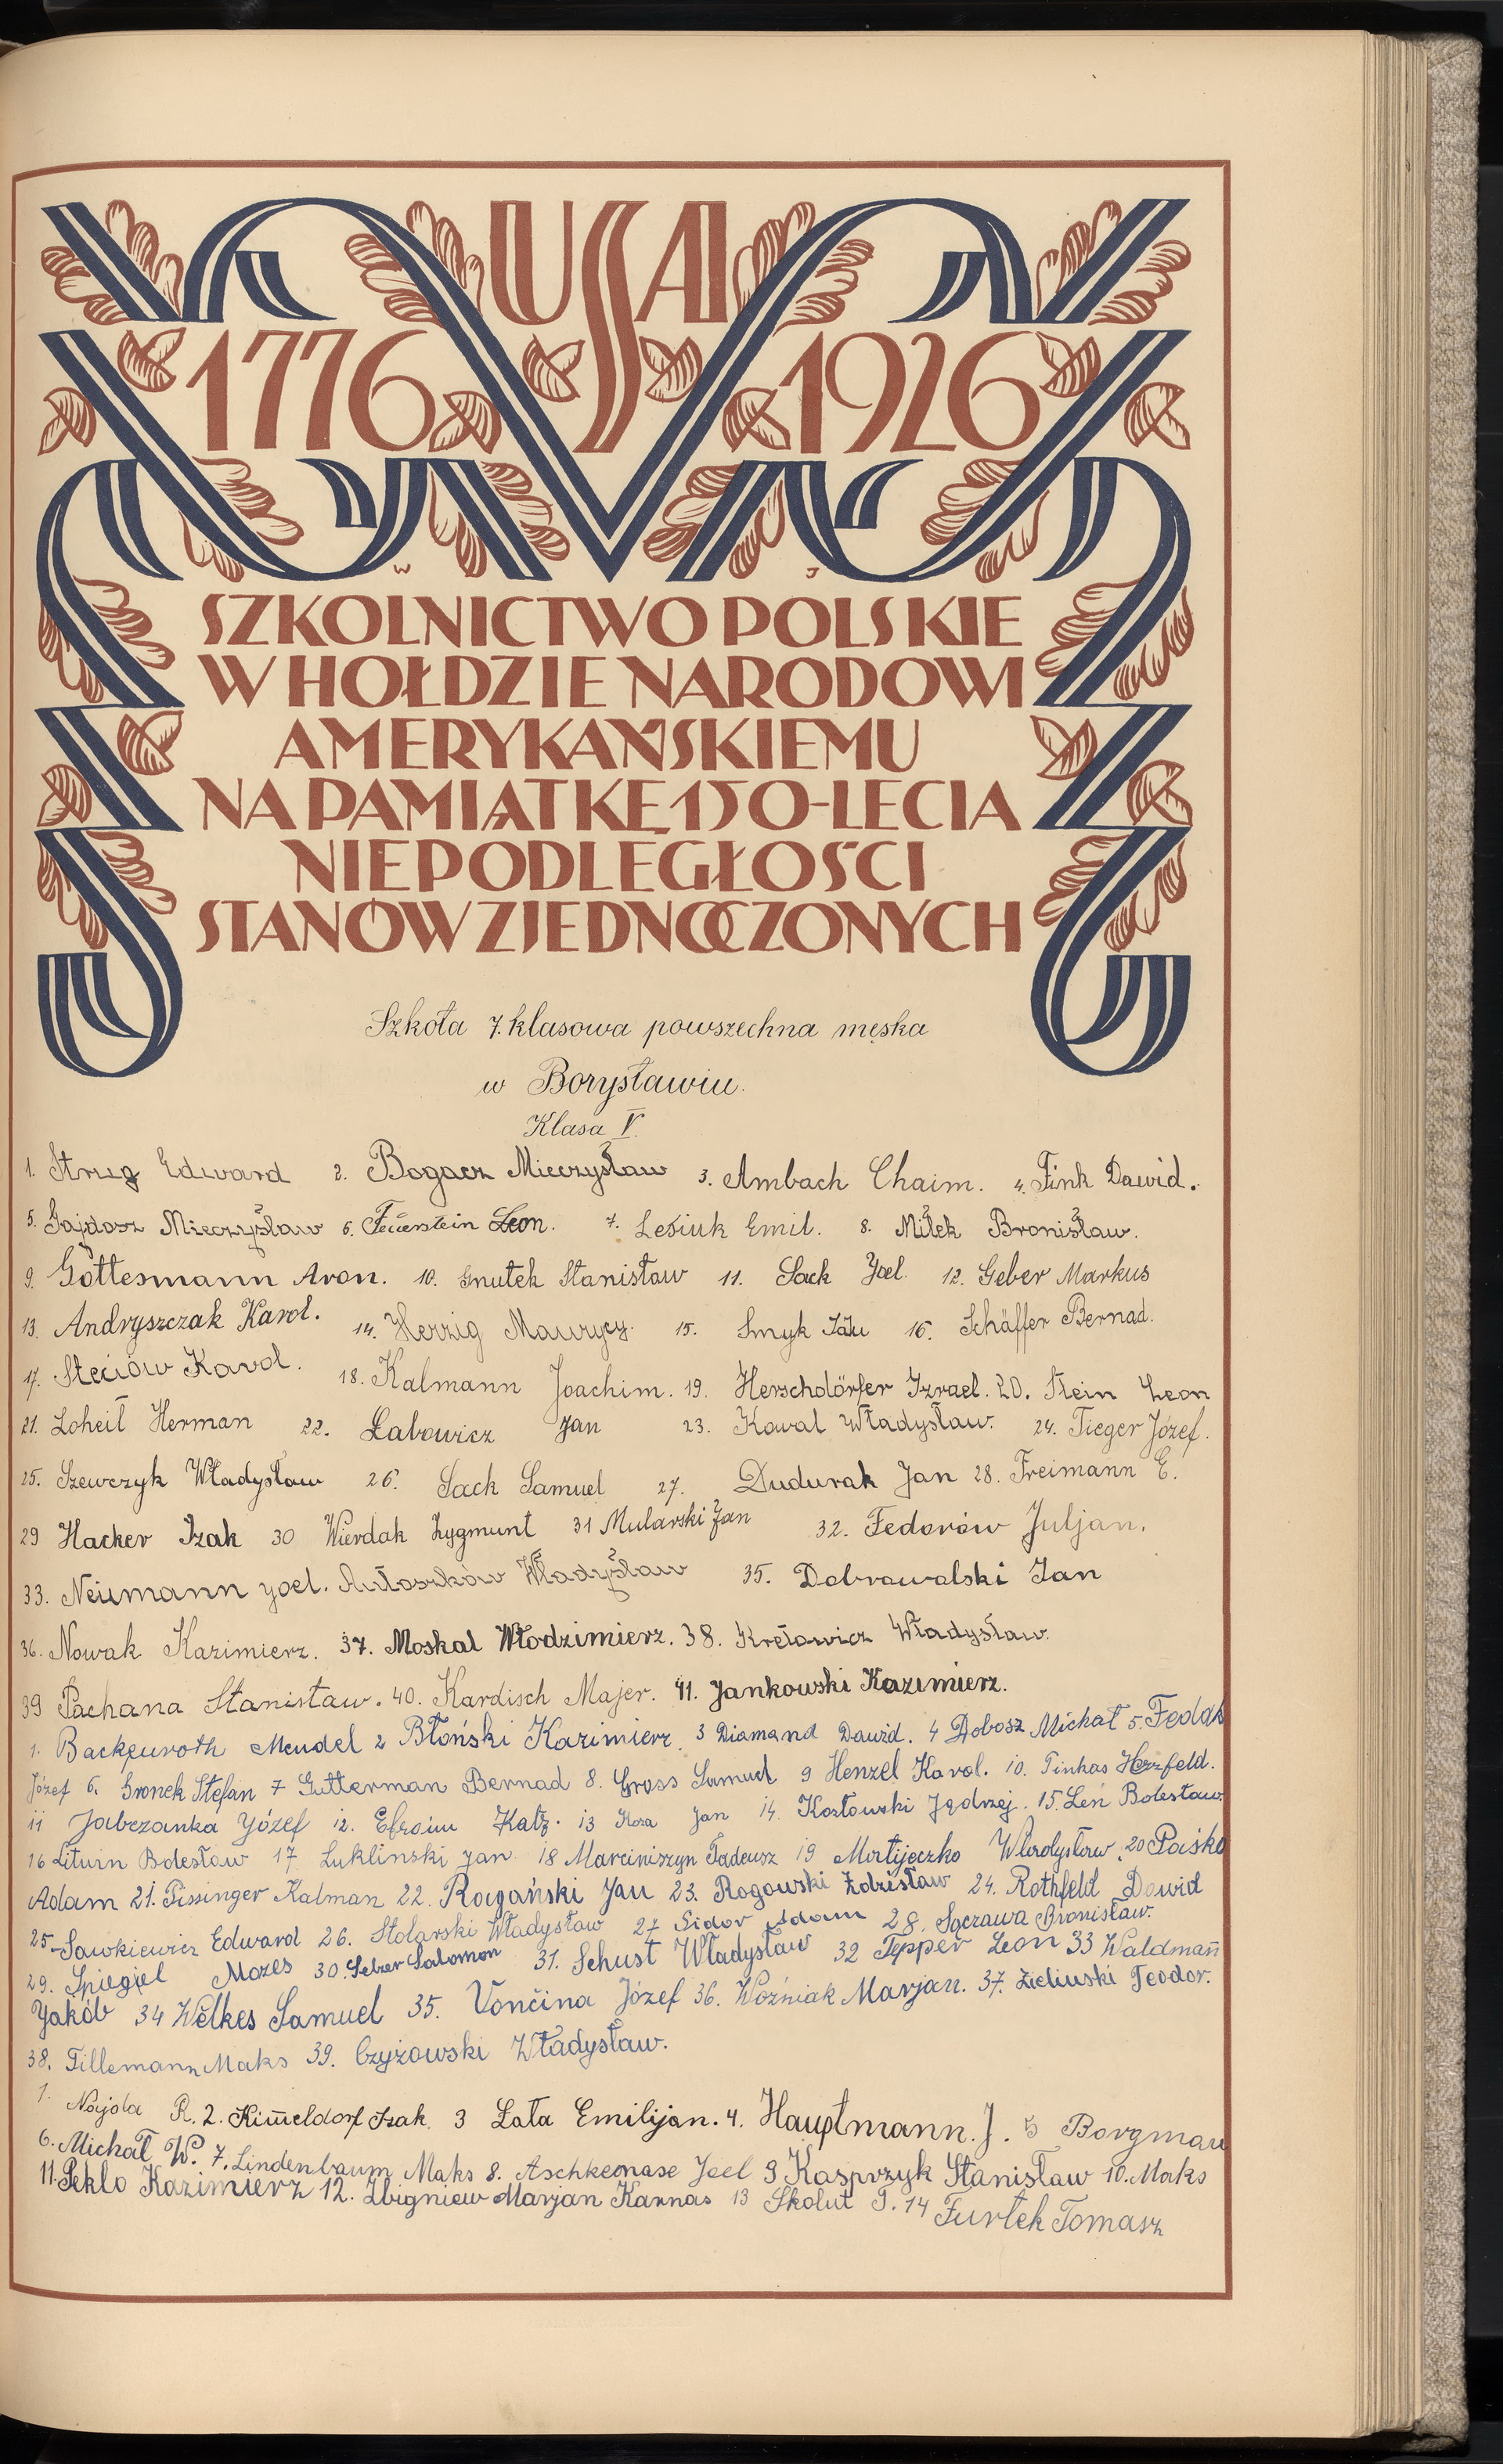 USA
1776 1926
W J
SZKOLNICTWO POLSKIE
W HOŁDZIE NARODOWI
AMERYKAŃSKIEMU
NA PAMIĄTKĘ 150-LECIA
NIEPODLEGŁOŚCI
STANÓW ZJEDNOCZONYCH
Szkoła 7. klasowa powszechna męska
w Borysławiu.
Klasa V.
1. Strug Edward 2. Bogacz Mieczysław 3. Ambach Chaim. 4. Fink Dawid.
5. Gajdosz Mieczysław 6. Feuerstein Leon. 7. Lesiuk Emil. 8. Miłek Bronisław.
9. Gottesmann Aron. 10. Gnutek Stanisław 11. Sack Joel. 12. Geber Markus
13. Andryszczak Karol. 14. Herzig Maurycy. 15. Smyk 16. Schäffer Bernad.
17. Steciów Karol. 18. Kalmann Joachim. 19. Herschdörfer Izrael. 20. Stein Leon
21. Loheit Herman 22. Łabowicz Jan 23. Kowal Władysław. 24. Tieger Józef.
25. Szewczyk Władysław 26. Sack Samuel 27. Dudurak Jan 28. Freimann E.
29 Hacker Izak 30 Wierdak Zygmunt 31 Mularski Jan 32. Fedorów Juljan.
33. Neumann Joel. Antoszków Władysław 35. Dobrowolski Jan
36. Nowak Kazimierz. 37. Moskal Włodzimierz. 38. Kretowicz Władysław.
39 Pachana Stanisław. 40. Kardisch Majer. 41. Jankowski Kazimierz.
1. Backenroth Mendel 2 Błoński Kazimierz. 3 Diamand Dawid. 4 Dobosz Michał 5. Fedak
Józef 6. Gronek Stefan 7 Gutterman Bernad 8. Gross Samuel 9 Henzel Karol. 10. Pinkas Herzfeld.
11 Jabczanka Józef 12. Efroim Katz. 13 Koza Jan 14. Kozłowski Jędrzej. 15. Leń Bolesław
16 Lituin Bolesław 17 Luklinski Jan 18 Marciniszyn Tadeusz 19 Matijeczko Władysław 20 Paśko
Adam 21. Pissinger Kalman 22. Rogański Jan 23. Rogowski Zdzisław 24. Rothfeld Dawid
25 Sawkiewicz Edward 26. Stolarski Władysław 27 Sidor Adam 28. Soczawa Bronisław.
29. Spiegiel Mozes 30. Selzer Salomon 31. Schust Władysław 32 Tepper Leon 33 Waldmann
Jakób 34 Welkes Samuel 35. Vončina Józef 36. Woźniak Marjan. 37. Zieliński Teodor.
38. Tillemann Maks 39. Czyżowski Władysław.
1. Nojola R. 2. Kimeldorf Izak. 3 Lata Emilijan. 4. Hauptmann. J. 5 Borgman
6. Michał W. 7. Lindenbaum Maks 8. Aschkenase Joel 9 Kasprzyk Stanisław 10. Maks
11. Peklo Kazimierz 12. Zbigniew Marjan Karnas 13 Skolut T. 14 Furtek Tomasz